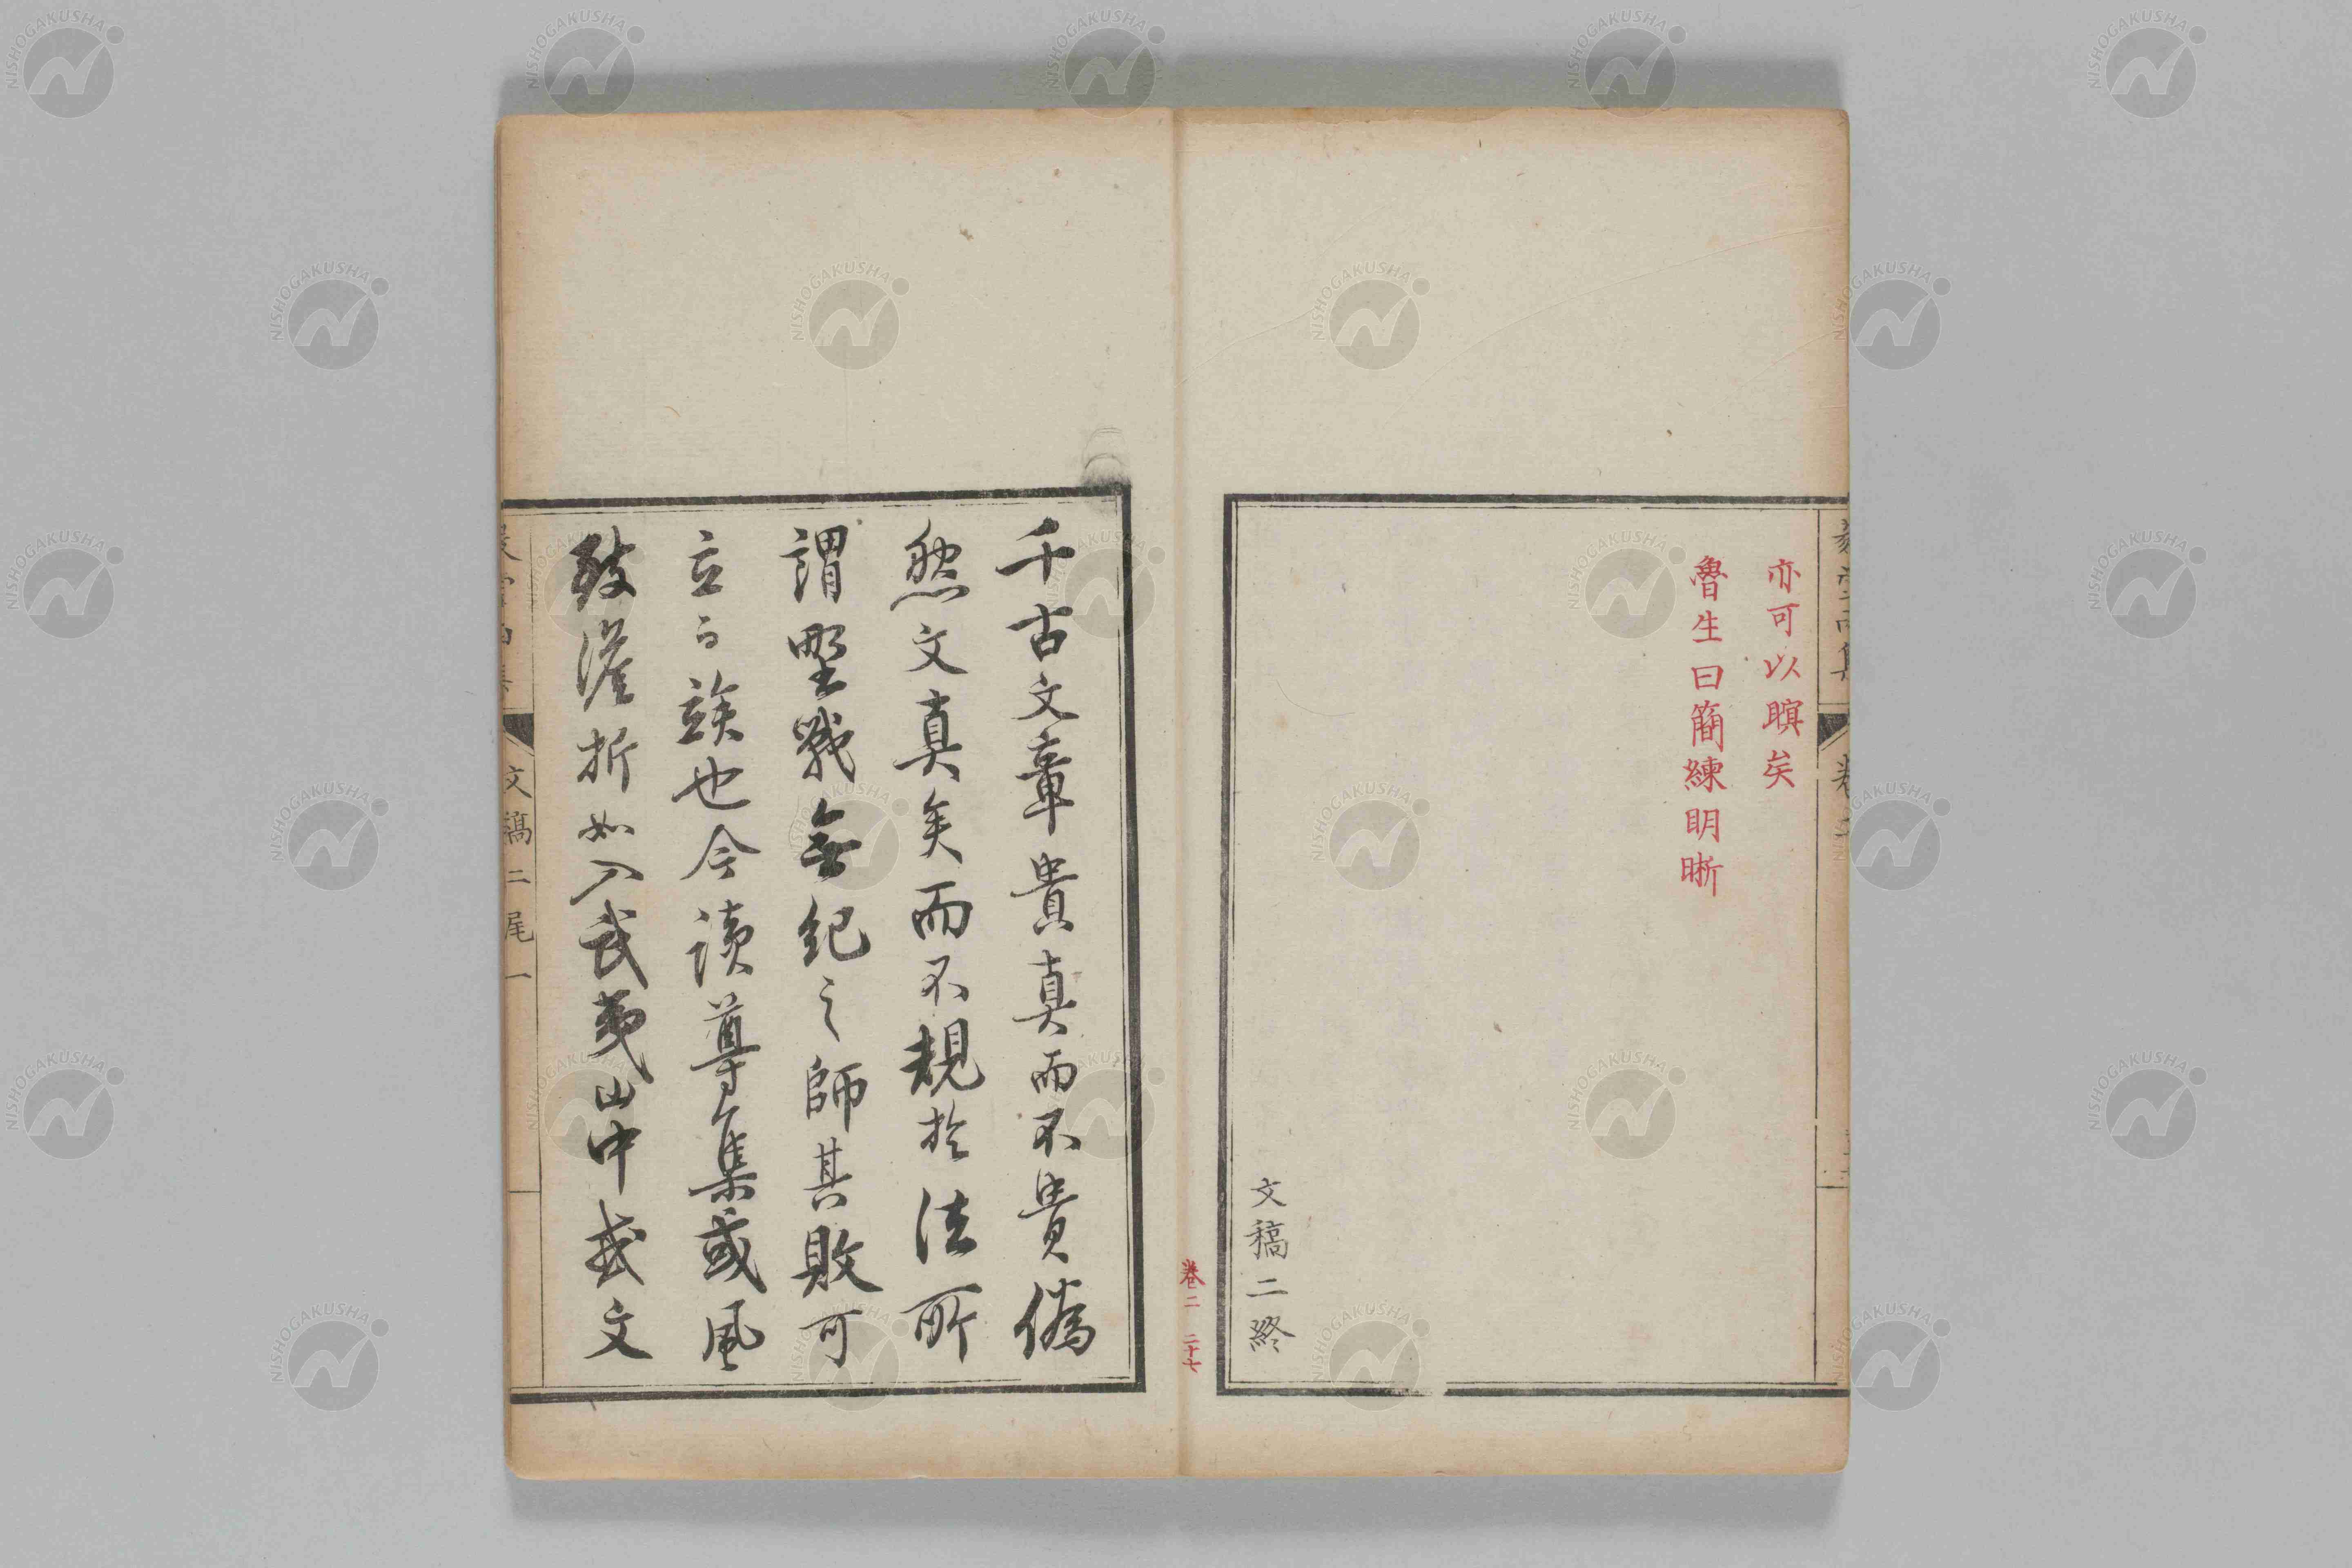 亦可以瞑矣
魯生曰簡練明晣
文稿二終
卷二 二十七
千古文章貴真而不貴偽
然文真矣而不規於法所
謂野戰無紀之師其敗可
立而竢也今讀尊集或風
致澹折如入武夷山中或文
文稿二尾一
NISHOGAKUSHA